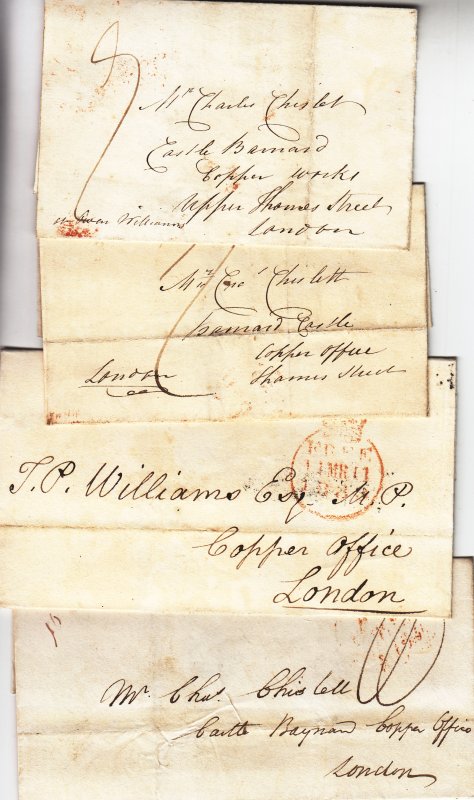 9
Mr Charles Chislet
Castle Barnard
Copper Works
Upper Thames Street
London
Williams
Mr Chas Chislett
Barnard Castle
Copper Office
Thames Street
London
T.P. Williams Esq M.P.
Copper Office
London
FREE
11 MR 11
Mr Chas. Chislell
Castle Baynard Copper Office
London